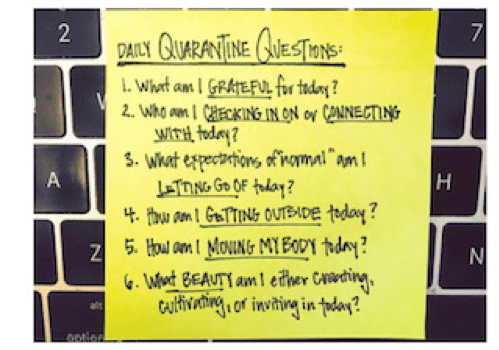 2
7
A
H
Z
N
alt
option
DAILY QUARANTINE QUESTIONS:
1. What am I GRATEFUL for today?
2. Who am I CHECKING IN ON or CONNECTING
WITH today?
3. What expectations of "normal" am I
LETTING GO OF today?
4. How am I GETTING OUTSIDE today?
5. How am I MOVING MY BODY today?
6. What BEAUTY am I either creating,
cultivating, or inviting in today?